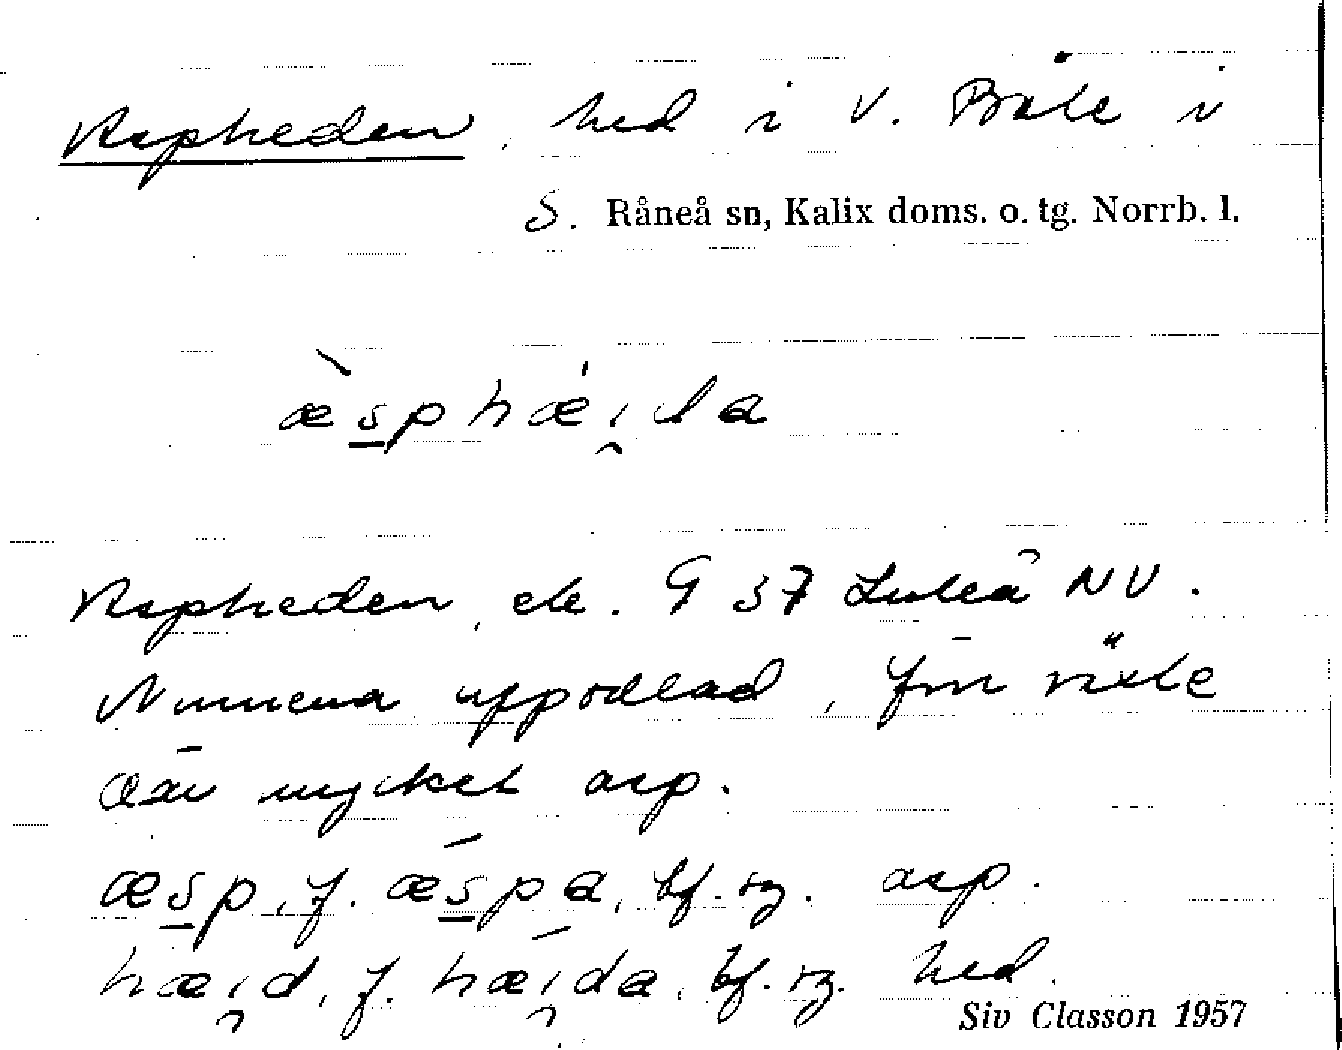 Aspheden, hed i V. Bäle i
S. Råneå sn, Kalix doms. o. tg. Norrb. l.
æ̀sphæ̍i̯da
Aspheden, ek. 9 37 Luleå NV.
Numera uppodlad, förr växte
där mycket asp.
æsp, f. ǽspa, bf. sg. asp.
hæi̯d, f. hǽi̯da, bf. sg. hed.
Siv Classon 1957